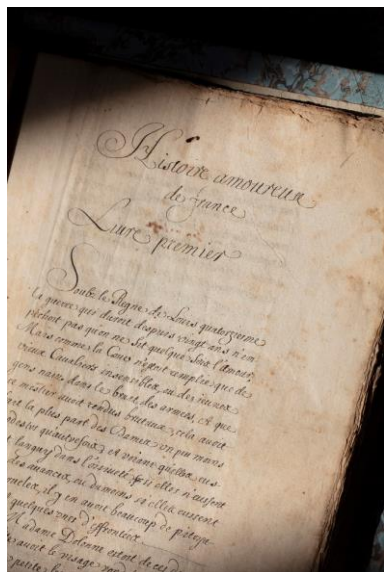 Histoire amoureuse
de france
Liure premier
Soubs le Regne de Louis quatorziesme
la guerre qui duroit despuis vingt ans n'em
pechoit pas qu'on ne fit quelque fois l'amour,
Mais comme la Cour n'estoit remplie que de
vieux Cavaliers insensibles, ou des jeunes
gens naiz dans le bruit des armes, et que
ce mestier auoit rendus brutaux, cela auoit
fait la plus part des Dames un peu moins
modestes qu'autrefois, et voiant qu'elles eus
sent languy dans l'oisiueté si elles n'eussent
des auances, ou du moins si elles eussent
cruelles, il y en auoit beaucoup de pitoya
quelques unes d'effrontees
Madame Dolonne estoit de ces
auoit le visage rond
petite, la